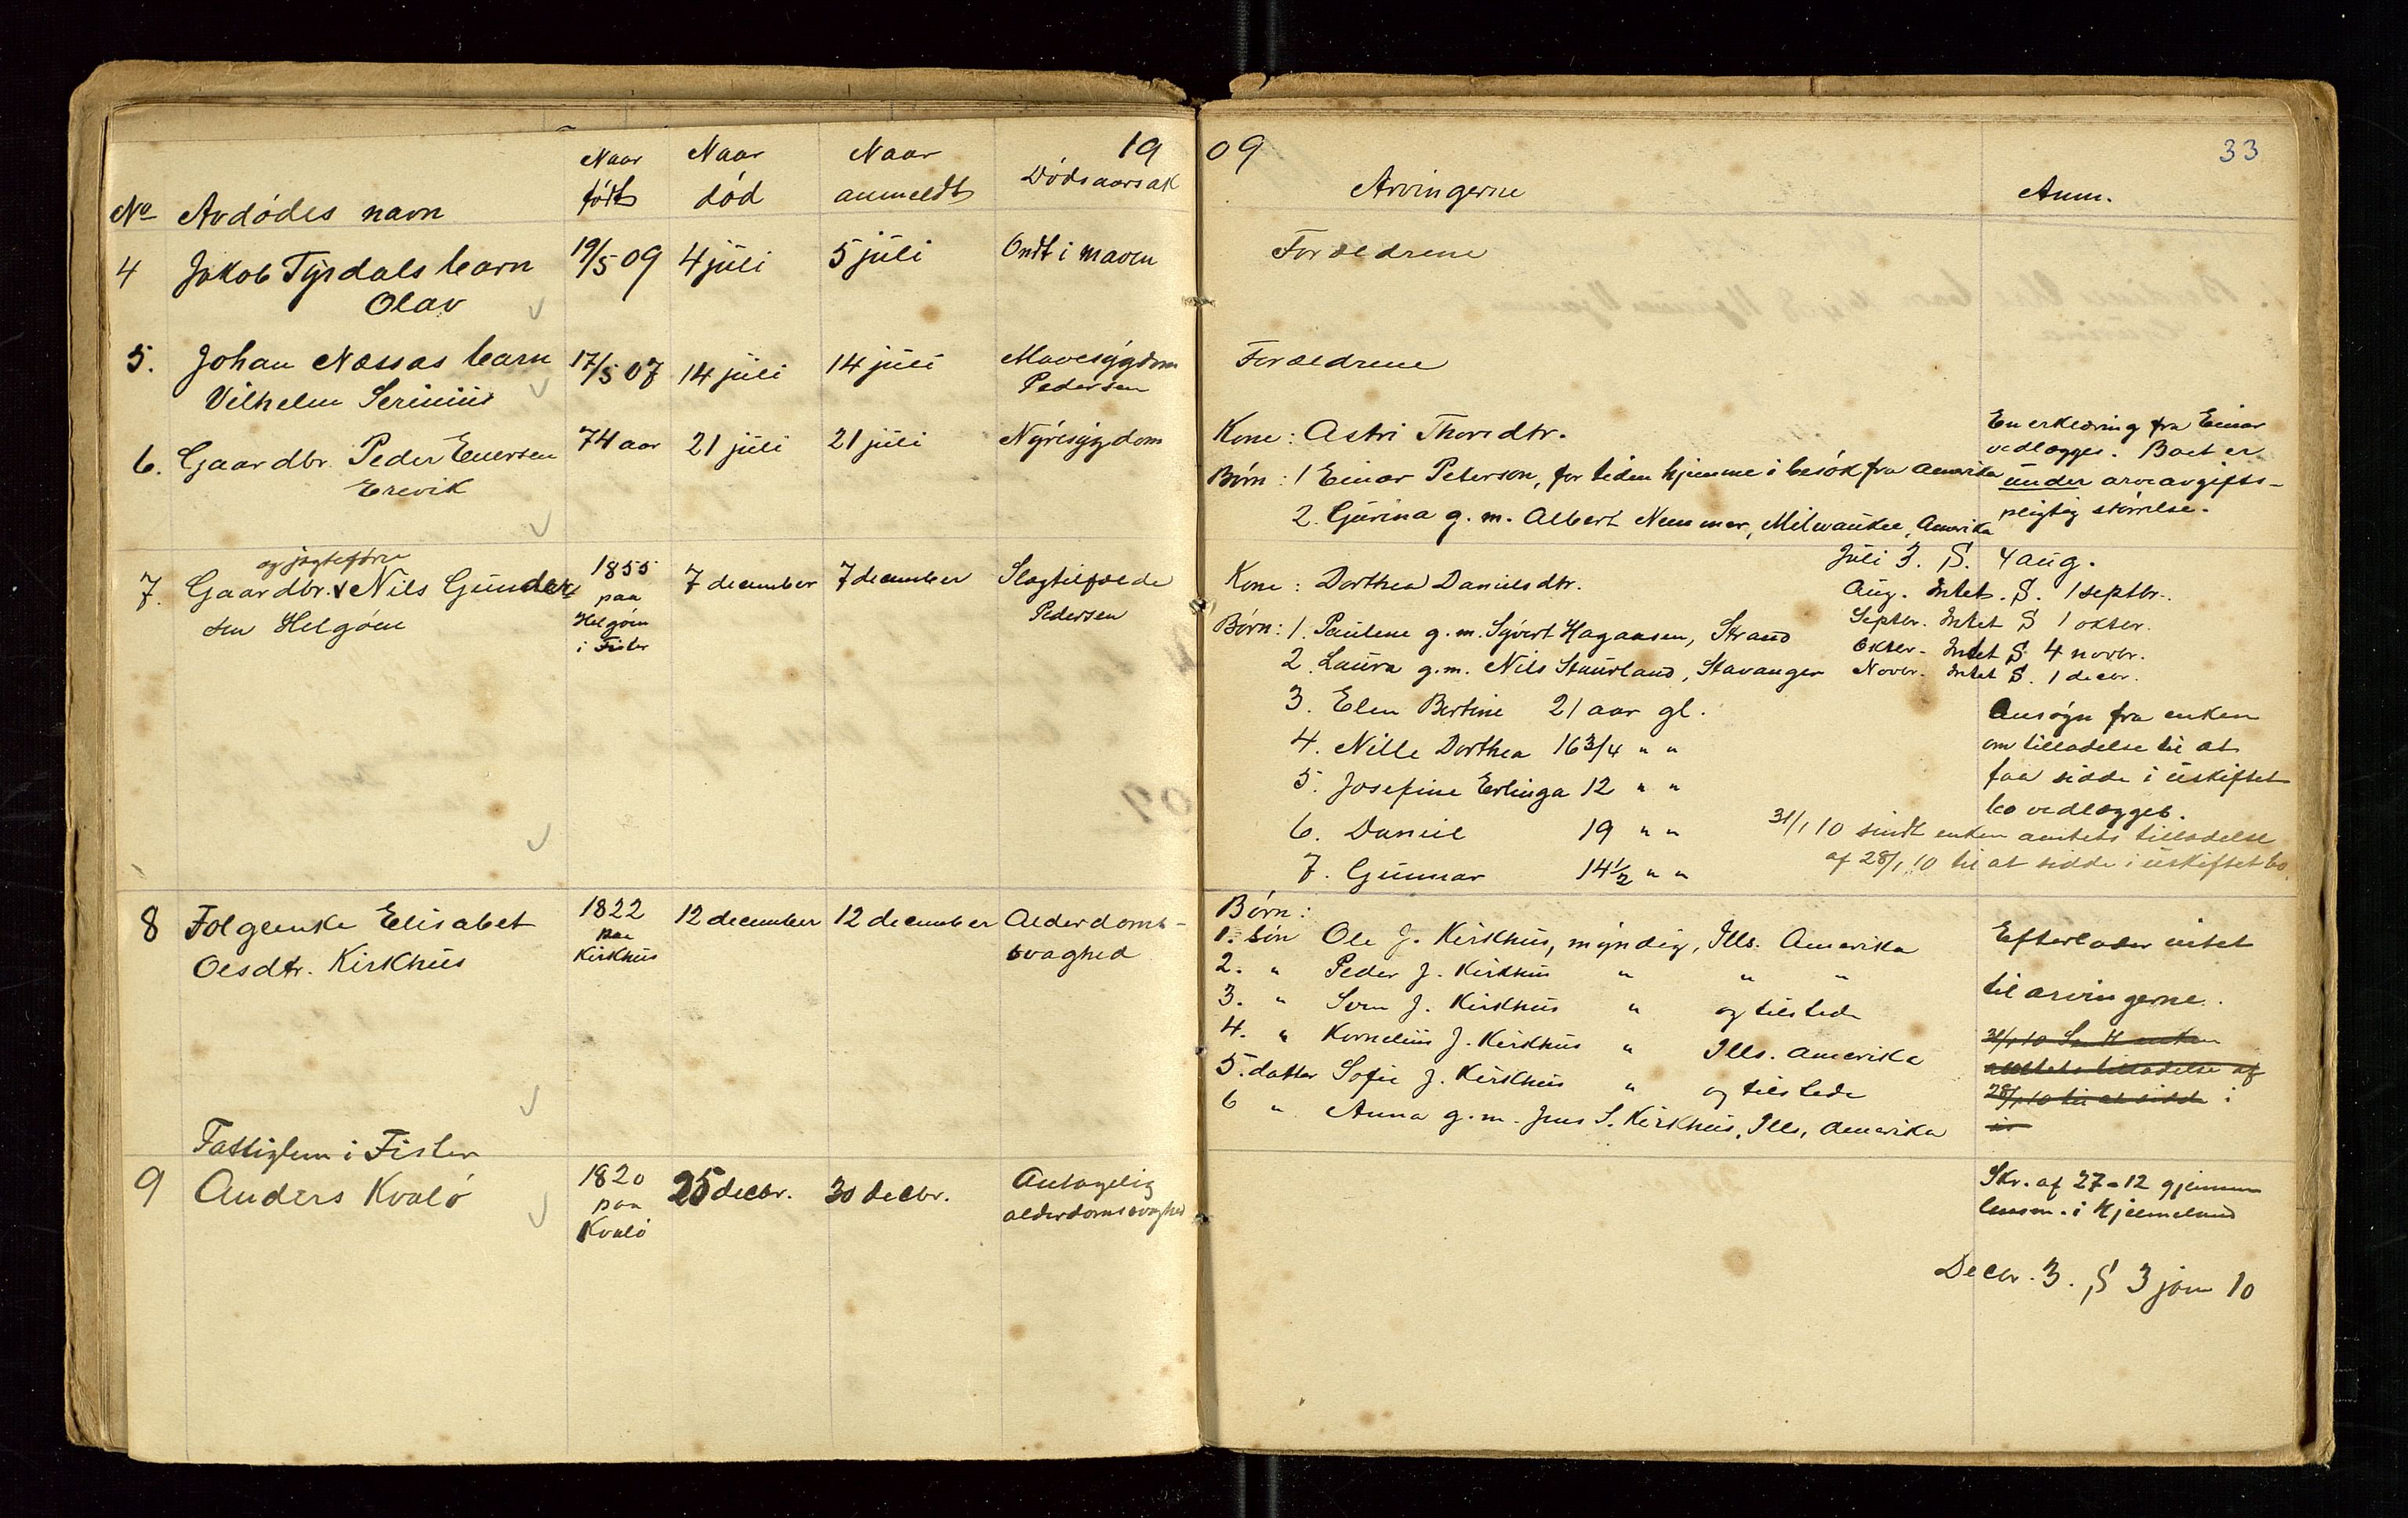 19
09
33
No
Avdödes navn
Naar födt
Naar död
Naar anmeldt
Dödsaarsak
Arvingerne
Anm.
4 Jakob Tysdals barn 19/5 09 4 juli 5 juli Ondt i maven Foræeldrene
Olav
5. Johan Næssas barn 17/5 07 14 juli 14 juli Mavesygdom Forældrene
Vilhelm Pedersen
6. Gaardbr. Peder Enersen 74 aar 21 juli 21 juli Nyresygdom
Erevik
Kone: Astri Thoredtr.
Börn: 1 Einar Peterson, for tiden hjemme i besök fra Amerika
2. Gurina g.m. Albert Nemmer, Milwaukee, Amerika
En erklæring fra Einar
vedlægges. Boet er
under arveavgifts-
pligtig störrelse.
Juli 3. S. 4 aug.
Aug. Intet. S. 1 septbr.
Septbr. Intet S 1 oktbr.
Oktbr. Intet S. 4 novbr.
Novbr. Intet S. 1 decbr.
og jagtefører
7. Gaardbr. Nils Gunder- 1855 7 december 7 december Slagtilfælde
sen Helgöen paa Pedersen
Helgöen
i Fister
Kone: Dorthea Danielsdtr.
Börn: 1. Pauline g.m. Syvert Hagansen, Strand
2. Laura g.m. Nils Staurland, Stavanger
3. Elen Bertine 21 aar gl.
4. Nille Dorthea 16 3/4 " "
5. Josefine Erlinga 12 " "
6. Daniel 19 " "
7. Gunnar 14 1/2 " "
Ansögn fra enken
om tilladelse til at
faa sidde i uskiftet
bo vedlægges.
31/1 10 sendt enken amtets tilladelse
af 28/1 10 til at sidde i uskiftet bo.
8 Folgeenke Elisabet 1822 12 december 12 december Alderdoms-
Olesdtr. Kirkhus paa svaghed
Kirkhus
Börn:
1. sön Ole J. Kirkhus, myndig, Ills. Amerika
2. " Peder J. Kirkhus " " "
3. " Sven J. Kirkhus " og tilstede
4. " Kornelius J. Kirkhus " Ills. Amerika
5. datter Sofie J. Kirkhus " og tilstede
6 " Anna g.m. Jens S. Kirkhus, Ills, Amerika
Efterlader intet
til arvingerne.
31/1 10 enken
amtets tilladelse af
28/1 10 til at sidde i
Fattiglem i Fister
9 Anders Kvalö 1820 25 decbr. 30 decbr. Antagelig
paa alderdomssvaghed
Kvalö
Skr. af 27-12 gjennem
lensm. i Hjelmeland
Decbr. 3. S 3 jan 10